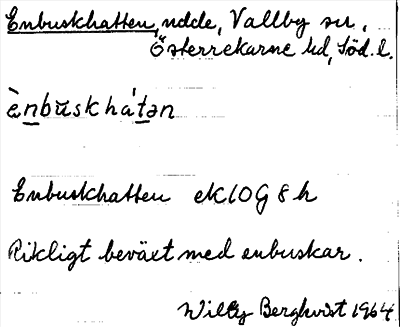 Enbuskhatten, udde, Vallby sn,
Österrekarne hd, Söd. l.
ènbùskhát̲ən
Enbuskhatten ek10G8h
Rikligt beväxt med enbuskar.
Willy Berghvist 1964